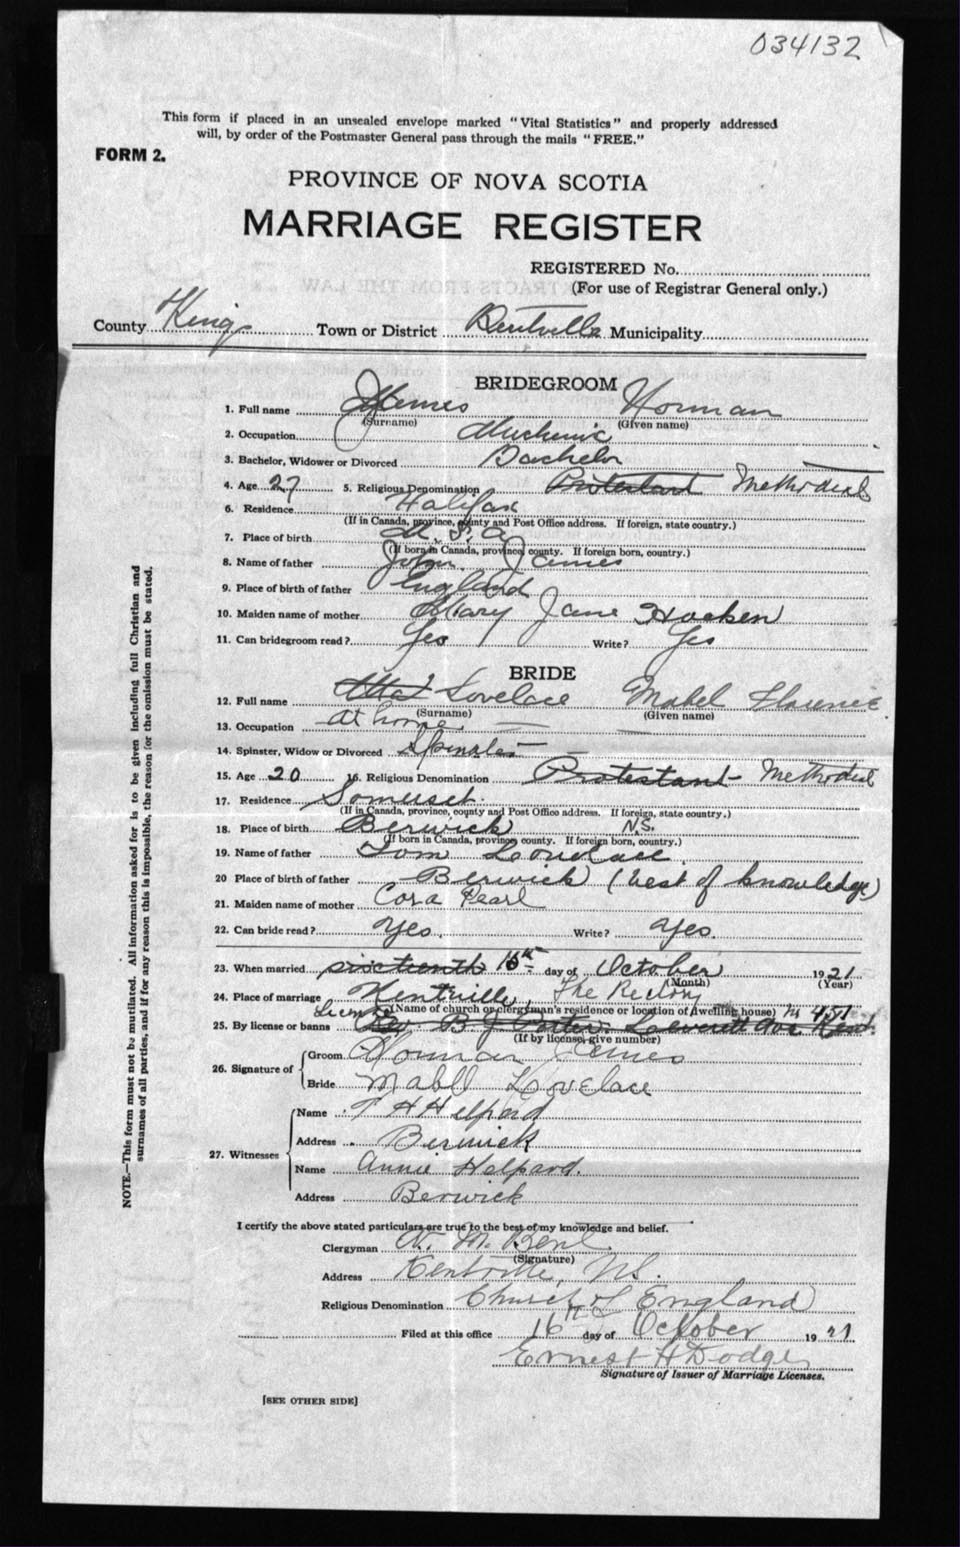 034132
This form if placed in an unsealed envelope marked "Vital Statistics" and properly addressed
will, by order of the Postmaster General pass through the mails "FREE."
FORM 2.
PROVINCE OF NOVA SCOTIA
MARRIAGE REGISTER
REGISTERED No.
(For use of Registrar General only.)
County Kings Town or District Kentville Municipality
BRIDEGROOM
1. Full name James Norman
(Surname) (Given name)
2. Occupation Mechanic
3. Bachelor, Widower or Divorced Bachelor
4. Age 27 5. Religious Denomination Protestant Methodist
6. Residence Halifax
(If in Canada, province, county and Post Office address. If foreign, state country.)
7. Place of birth U. S. A.
(If born in Canada, province, county. If foreign born, country.)
8. Name of father John James
9. Place of birth of father England
10. Maiden name of mother Mary Jane Hocken
11. Can bridegroom read? Yes Write? Yes
BRIDE
12. Full name Lovelace Mabel Florence
(Surname) (Given name)
13. Occupation at home
14. Spinster, Widow or Divorced Spinster
15. Age 20 16. Religious Denomination Protestant Methodist
17. Residence Somerset
(If in Canada, province, county and Post Office address. If foreign, state country.)
18. Place of birth Berwick N.S.
(If born in Canada, province, county. If foreign born, country.)
19. Name of father Tom Lovelace
20 Place of birth of father Berwick (best of knowledge)
21. Maiden name of mother Cora Pearl
22. Can bride read? Yes. Write? Yes.
23. When married sixteenth day of October 1921
(Month) (Year)
24. Place of marriage Kentville, The Rectory
(Name of church or clergyman's residence or location of dwelling house)
25. By license or banns License Rev. B J Porter. Leverett Ave Kent. 451
(If by license, give number)
26. Signature of Groom Norman James
Bride Mabel Lovelace
27. Witnesses
Name T H Helpard
Address Berwick
Name Annie Helpard.
Address Berwick
I certify the above stated particulars are true to the best of my knowledge and belief.
Clergyman
(Signature)
Address Kentville, N.S.
Religious Denomination Church of England
Filed at this office 16th day of October 1921
Ernest H Dodge
Signature of Issuer of Marriage Licenses.
[SEE OTHER SIDE]
NOTE.—This form must not be mutilated. All information asked for is to be given including full Christian and
surnames of all parties, and if for any reason this is impossible, the reason for the omission must be stated.